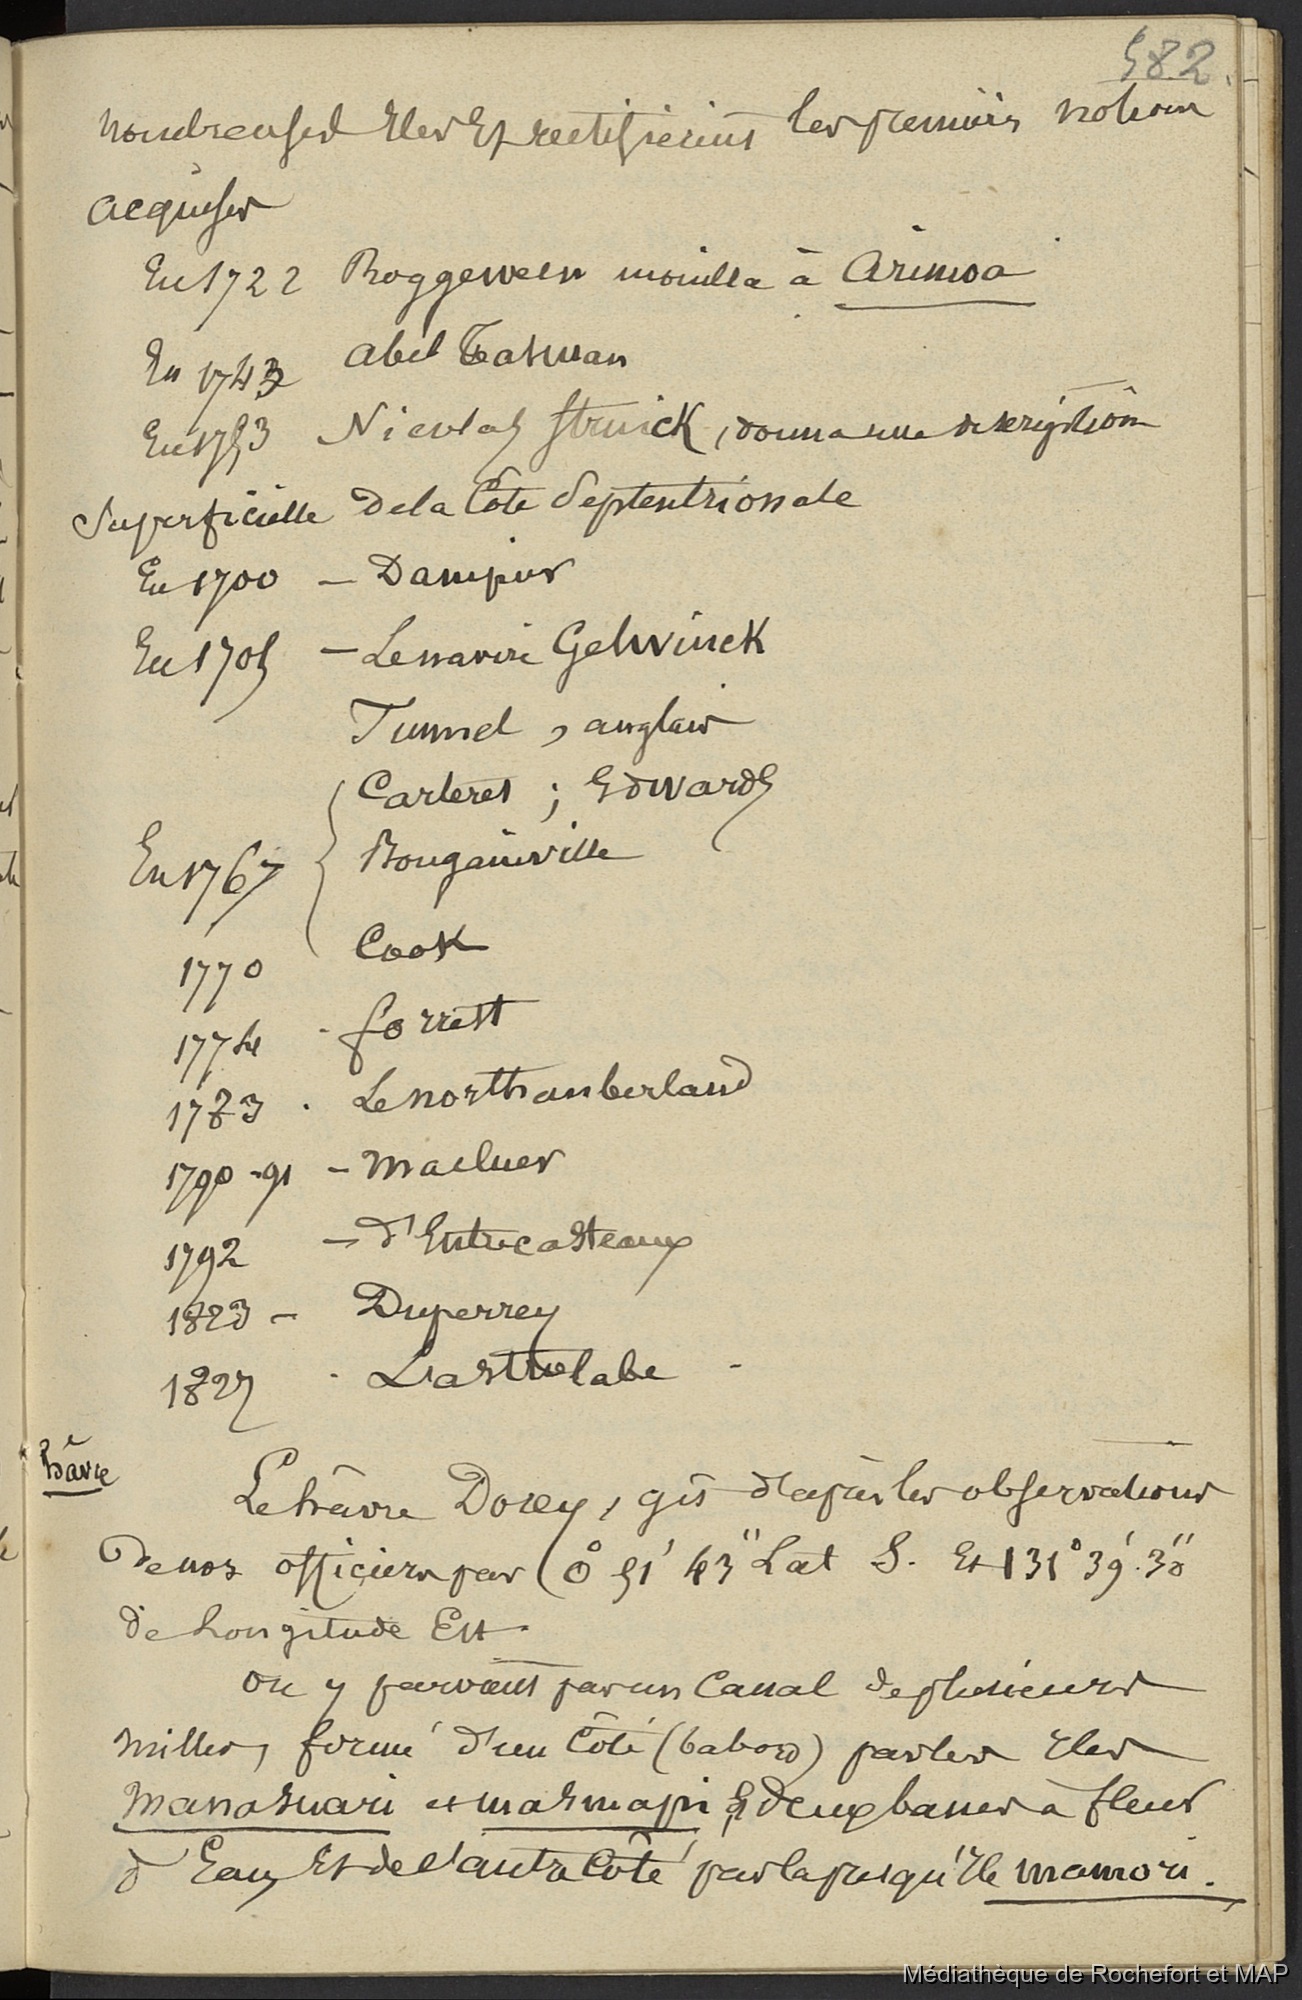 582.
nombreuses Iles Et rectifièrent les premières notions
acquises
En 1722 Roggeween mouilla à Arimoa
En 1743 Abel Tasman
En 1753 Nicolas Struick, donna une description
Superficielle De la Côte Septentrionale
En 1700 – Dampier
En 1705 – Le navire Gelwinck
Tunnel, anglais
Carteret ; Edwards
En 1767 { Bougainville
1770 Cook
1774 . forrest
1783 . Le northumberland
1790-91 – Macluer
1792 – d'Entrecasteaux
1823 – Duperrey
1827 . L'astrolabe -
hâvre
Le hâvre Dorey, gît d'après les observations
De nos officiers par (0° 51' 43" Lat S. Et 131° 39'. 30"
De Longitude Est.
on y parvient par un Canal de plusieurs
milles, formé d'un Côté (babord) par les Iles
Manasuari et masmapi & deux bancs à fleur
d'Eau, Et de l'autre Côté par la presqu'Ile mamori.
Médiathèque de Rochefort et MAP